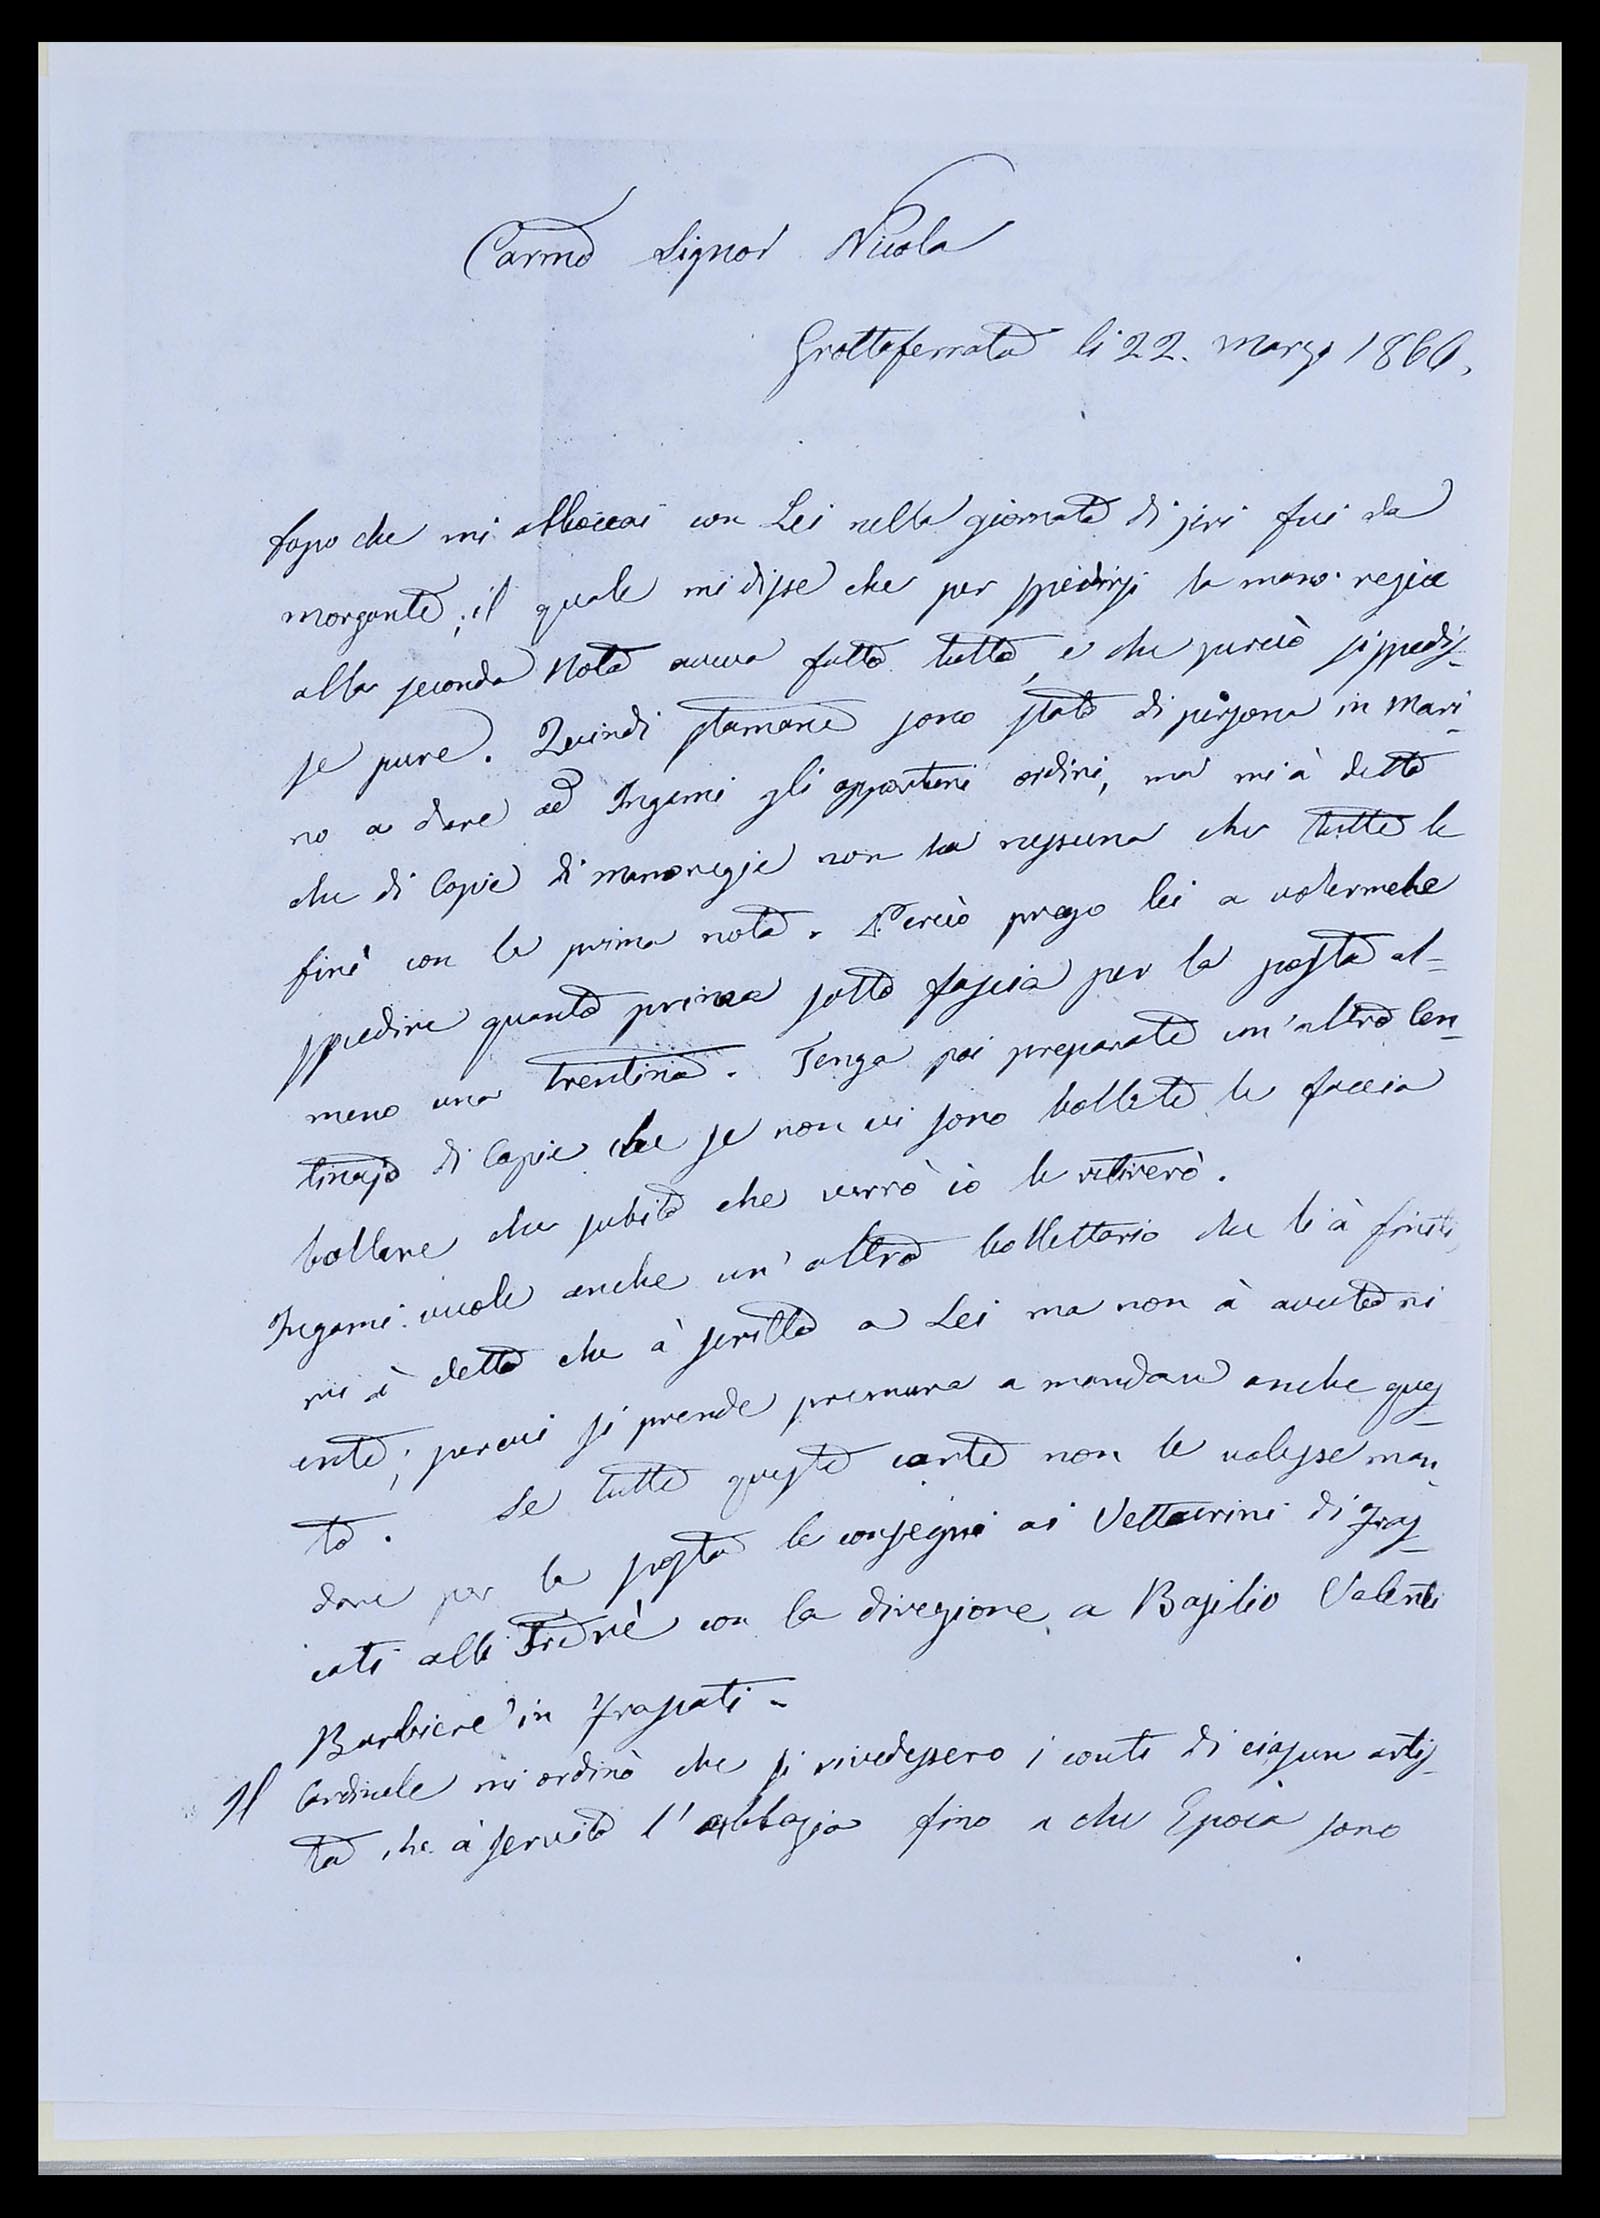 Carmo Signor Nicola
Grottaferrata li 22. Marzo 1860.
Dopo che mi abboccai con Lei nella giornata di jeri fui da
Morgante; il quale mi disse che per spedirsi la mano regia
alla seconda Nota aveva fatto tutto, e che perciò si spedis-
se pure. Quindi stamane sono stato di persona in Mari-
no a dare ad Ingami gli opportuni ordini, ma mi à detto
che di Copie di manoregie non ha nessuna che tutte le
finì con la prima nota. Perciò prego lei a volermele
spedire quanto prima sotto fascia per la posta al-
meno una trentina. Tenga poi preparato un'altro Cen-
tinajo di Copie che se non vi sono bollate le faccia
bollare che subito che verrò io le ritirerò.
Ingami vuole anche un'altro bollettario che li à finiti,
mi à detto che à scritto a Lei ma non à avuto ni-
ente; percui si prende premura a mandare anche ques-
to. Se tutte queste carte non le volesse man-
dare per la posta le consegni ai Vetturini di Fras-
cati alli con la direzione a Basilio Valenti
Barbiere in Frascati.
Il Cardinale mi ordinò che si rivedessero i conti di ciascun artis-
ta che à servito l'abbazia fino a che Epoca sono